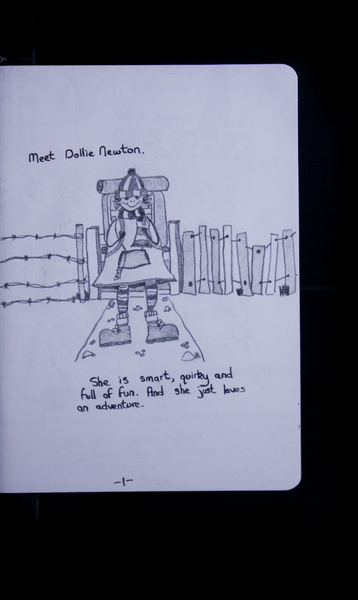 Meet Dollie Newton.
She is smart, quirky and
full of fun. And she just loves
an adventure.
-1-